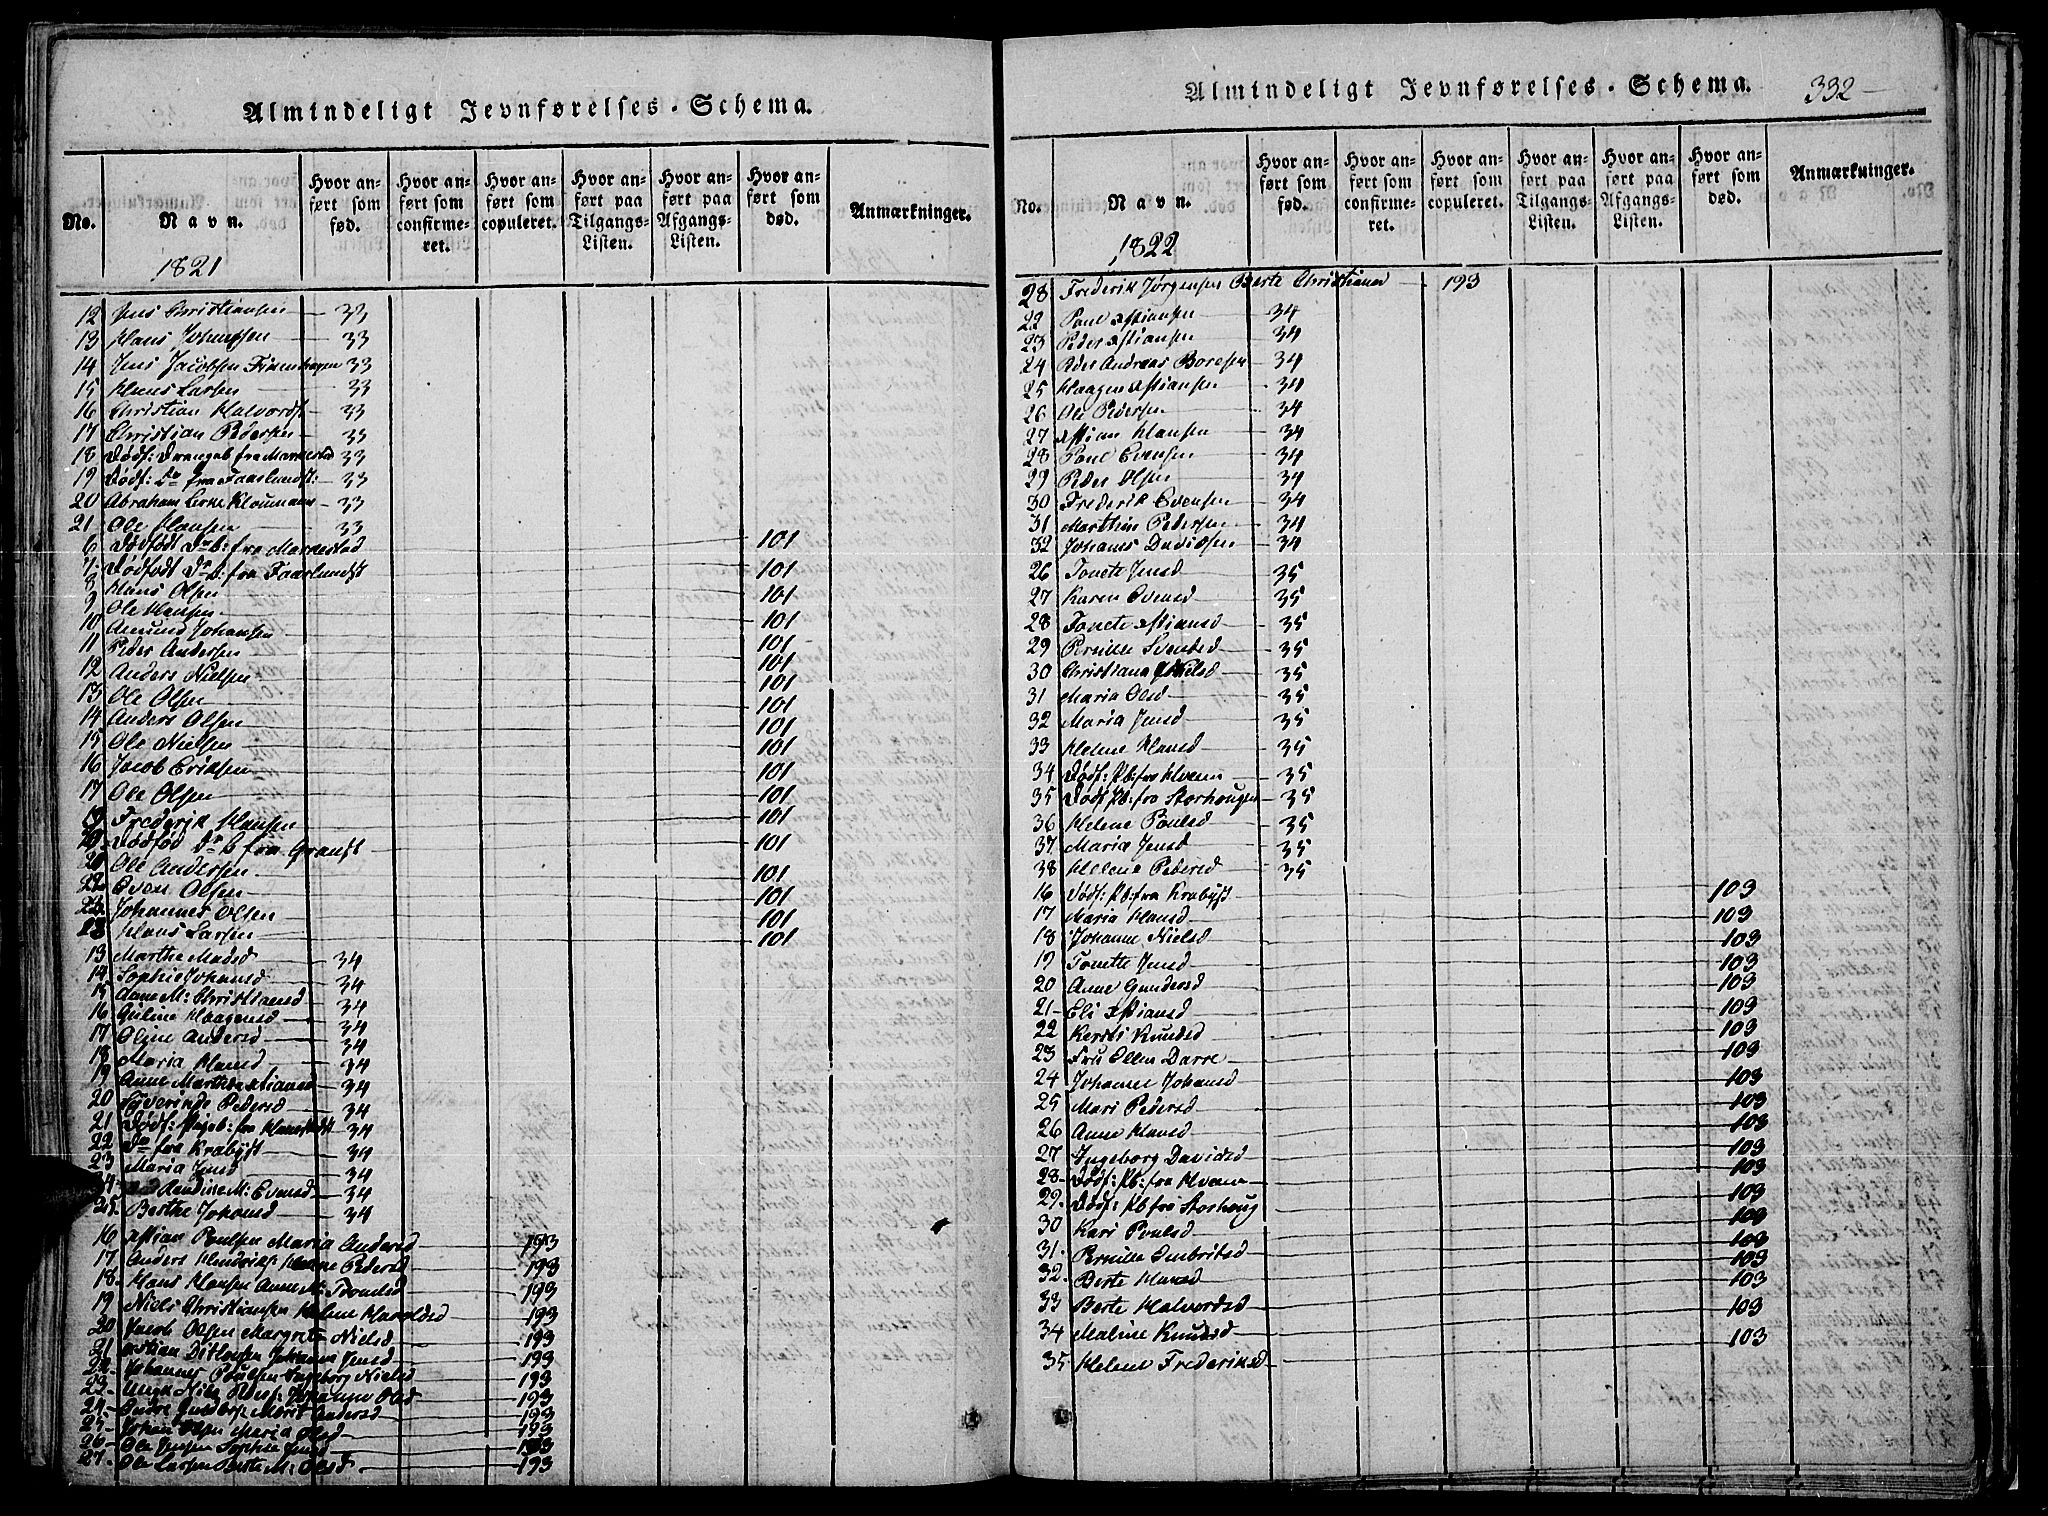 Almindeligt Jevnførelses-Schema.
No.
Navn.
Hvor anført som fød.
Hvor anført som confirmeret.
Hvor anført som copuleret.
Hvor anført paa Tilgangs-Listen.
Hvor anført paa Afgangs-Listen.
Hvor anført som død.
Anmærkninger.
1821
12 Jens Christiansen 33
13 Hans Johansen 33
14 Jens Jacobsen 33
15 Hans Larsen 33
16 Christian Halvords 33
17 Christian Pedersen 33
18 Dødf: Drengeb fra 33
19 Dødf: Do fra Faarlundst: 33
20 Abraham 33
21 Ole Hansen 33
6 Dødfødt Dr b: fra 101
7 Dødfødt Dr b: fra Faarlundst 101
8 Hans Olsen 101
9 Ole Hansen 101
10 Amund Johansen 101
11 Peder Andersen 101
12 Anders Nielsen 101
13 Ole Olsen 101
14 Anders Olsen 101
15 Ole Nielsen 101
16 Jacob Eriksen 101
17 Ole Olsen 101
Frederik Hansen 101
Dødfød Dr b fra 101
Ole Andersen 101
Even Olsen 101
Johannes Olsen 101
Hans Larsen 101
13 Marthe Madsd 34
14 Sophie Johansd 34
15 Anne M: Christiansd 34
16 Guline Haagensd 34
17 Oline Andersd 34
18 Maria Hansd 34
19 Anne Marthe Xstiansd 34
20 Syverinde Pedersd 34
21 Dødf: Pigeb: fra 34
22 Do fra Krabyst 34
23 Maria Jensd 34
24 Randine M: Evensd 34
25 Berthe Johansd 34
16 Xstian Poulsen Maria Andersd 193
17 Anders Hendrics: Pedersd 193
18 Hans Hansen Anne M: 193
19 Niels Christiansen Helene Haroldsd 193
20 Jacob Olsen Margrete Nielsd 193
21 Xstian Ditlevsen Johanne Jensd 193
22 Johannes Poulsen Ingeborg Nielsd 193
23 Niels Peders: Johanne Olsd 193
24 Marit Andersd 193
25 Johan Olsen Maria Olsd 193
26 Ole Jensen Sophie Jensd 193
27 Ole Larsen Berte M: Olsd 193
Almindeligt Jevnførelses-Schema.
332
No.
Navn.
Hvor anført som fød.
Hvor anført som confirmeret.
Hvor anført som copuleret.
Hvor anført paa Tilgangs-Listen.
Hvor anført paa Afgangs-Listen.
Hvor anført som død.
Anmærkninger.
1822
28 Frederik Jørgensen Berte Christians 193
22 Poul Xstiansen 34
23 Peder Xstiansen 34
24 Peder Andreas Boresen 34
25 Haagen Xstiansen 34
26 Ole Pedersen 34
27 Xstian Hansen 34
28 Poul Evensen 34
29 Peder Olsen 34
30 Frederik Evensen 34
31 Marthin Pedersen 34
32 Johanes Davidsen 34
26 Tonete Jensd 35
27 Karen Evensd 35
28 Tonete Xstiansd 35
29 Pernille Svendsd 35
30 Christiana Nielsd 35
31 Maria Olsd 35
32 Maria Jensd 35
33 Helene Hansd 35
34 Dødf: Pb: fra Hvam 35
35 Dødf Pb: fra Storhougen 35
36 Helene Poulsd 35
37 Maria Jensd 35
38 Helene Pedersd 35
16 Dødf: Pb: fra Krabyst 103
17 Maria Hansd 103
18 Johanne Nielsd 103
19 Tonette Jensd 103
20 Anne Gundersd 103
21 Eli Xstiansd 103
22 Kersti Knudsd 103
23 Fru Ellen Darre 103
24 Johanne Johansd 103
25 Mari Pedersd 103
26 Anne Hansd 103
27 Ingeborg Davidsd 103
28 Dødf: Pb: fra Hvam 103
29 Dødf: Pb fra Storhoug 103
30 Kari Poulsd 103
31 Pernille Embritsd 103
32 Berte Hansd 103
33 Berte Halvordsd 103
34 Maline Knudsd 103
35 Helene Frederiksd 103